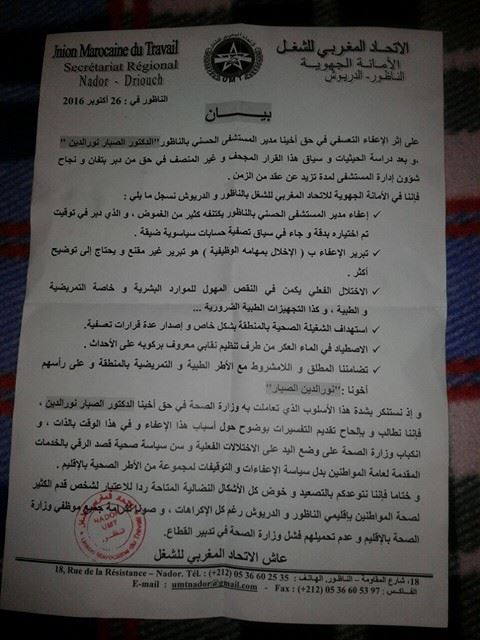 Union Marocaine du Travail
Secrétariat Régional
Nador - Driouch
UMT
الاتحاد المغربي للشغل
الأمانة الجهوية
الناظور- الدريوش
الناظور في : 26 أكتوبر 2016
بيــــان
على إثر الإعفاء التعسفي في حق أخينا مدير المستشفى الحسني بالناظور "الدكتور الصبار نورالدين "
،و بعد دراسة الحيثيات و سياق هذا القرار المجحف و غير المنصف في حق من دبر بتفان و نجاح
شؤون إدارة المستشفى لمدة تزيد عن عقد من الزمن .
فإننا في الأمانة الجهوية للاتحاد المغربي للشغل بالناظور و الدريوش نسجل ما يلي :
✓ إعفاء مدير المستشفى الحسني بالناظور يكتنفه كثير من الغموض ، و الذي دبر في توقيت
تم اختياره بدقة و جاء في سياق تصفية حسابات سياسوية ضيقة .
✓ تبرير الإعفاء ب ( الإخلال بمهامه الوظيفية ) هو تبرير غير مقنع و يحتاج إلى توضيح
أكثر .
✓ الاختلال الفعلي يكمن في النقص المهول للموارد البشرية و خاصة التمريضية
و الطبية ، و كذا التجهيزات الطبية الضرورية ...
✓ استهداف الشغيلة الصحية بالمنطقة بشكل خاص و إصدار عدة قرارات تعسفية.
✓ الاصطياد في الماء العكر من طرف تنظيم نقابي معروف بركوبه على الأحداث .
✓ تضامننا المطلق و اللامشروط مع الأطر الطبية و التمريضية بالمنطقة و على رأسهم
أخونا : "نورالدين الصبار"
و إذ نستنكر بشدة هذا الأسلوب الذي تعاملت به وزارة الصحة في حق أخينا الدكتور الصبار نورالدين ،
فإننا نطالب و بإلحاح تقديم التفسيرات بوضوح حول أسباب هذا الإعفاء و في هذا الوقت بالذات ، و
انكباب وزارة الصحة على وضع اليد على الاختلالات الفعلية و سن سياسة صحية قصد الرقي بالخدمات
المقدمة لعامة المواطنين بدل سياسة الإعفاءات و التوقيفات لمجموعة من الأطر الصحية بالإقليم .
و ختاما فإننا نتوعدكم بالتصعيد و خوض كل الأشكال النضالية المتاحة ردا للاعتبار لشخص قدم الكثير
لصحة المواطنين بإقليمي الناظور و الدريوش رغم كل الإكراهات ، و صونا لكرامة جميع موظفي وزارة
الصحة بالإقليم و عدم تحميلهم فشل وزارة الصحة في تدبير القطاع.
عاش الاتحاد المغربي للشغل
NADOR
UMT
Union Marocaine du Travail
18, شارع المقاومة – الناظور. الهاتف : 18, Rue de la Résistance – Nador. Tél. : (+212) 05 36 60 25 35
E-mail : umtnador@gmail.com - Fax : (+212) 05 36 60 53 97 : الفاكس